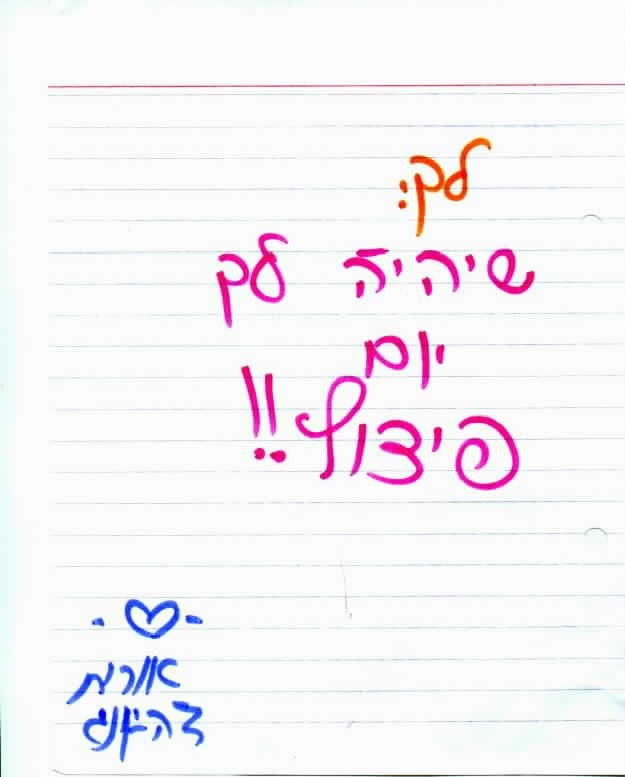 לך:
שיהיה לך
יום
פיצוץ!!
אורית